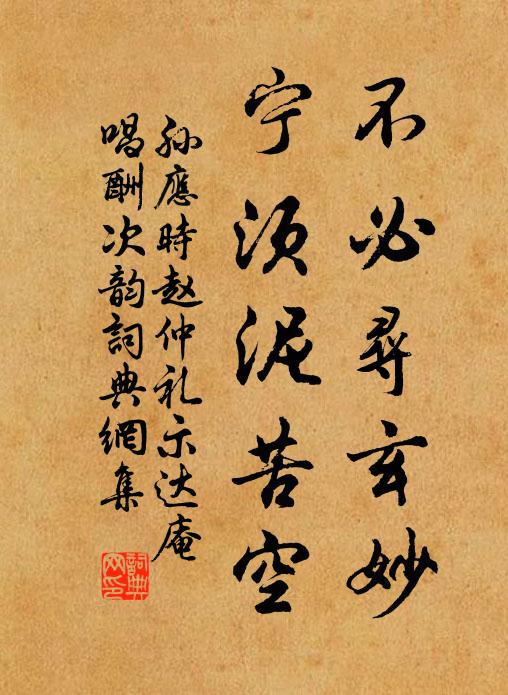 不必尋玄妙
宁须泥苦空
孙應時赵仲礼示达庵
唱酬次韵詞典網集
詞典
网印